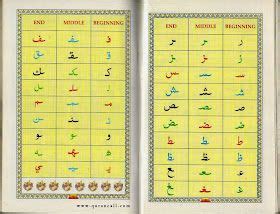 END MIDDLE BEGINNING
ـف ـفـ فـ
ـق ـقـ قـ
ـك ـكـ كـ
ـل ـلـ لـ
ـم ـمـ مـ
ـن ـنـ نـ
ـو ـو و
ـه ـهـ هـ
ـي ـيـ يـ
www.quran411.com
END MIDDLE BEGINNING
ـر ـر ر
ـز ـز ز
ـس ـسـ سـ
ـش ـشـ شـ
ـص ـصـ صـ
ـض ـضـ ضـ
ـط ـطـ طـ
ـظ ـظـ ظـ
ـع ـعـ عـ
ـغ ـغـ غـ